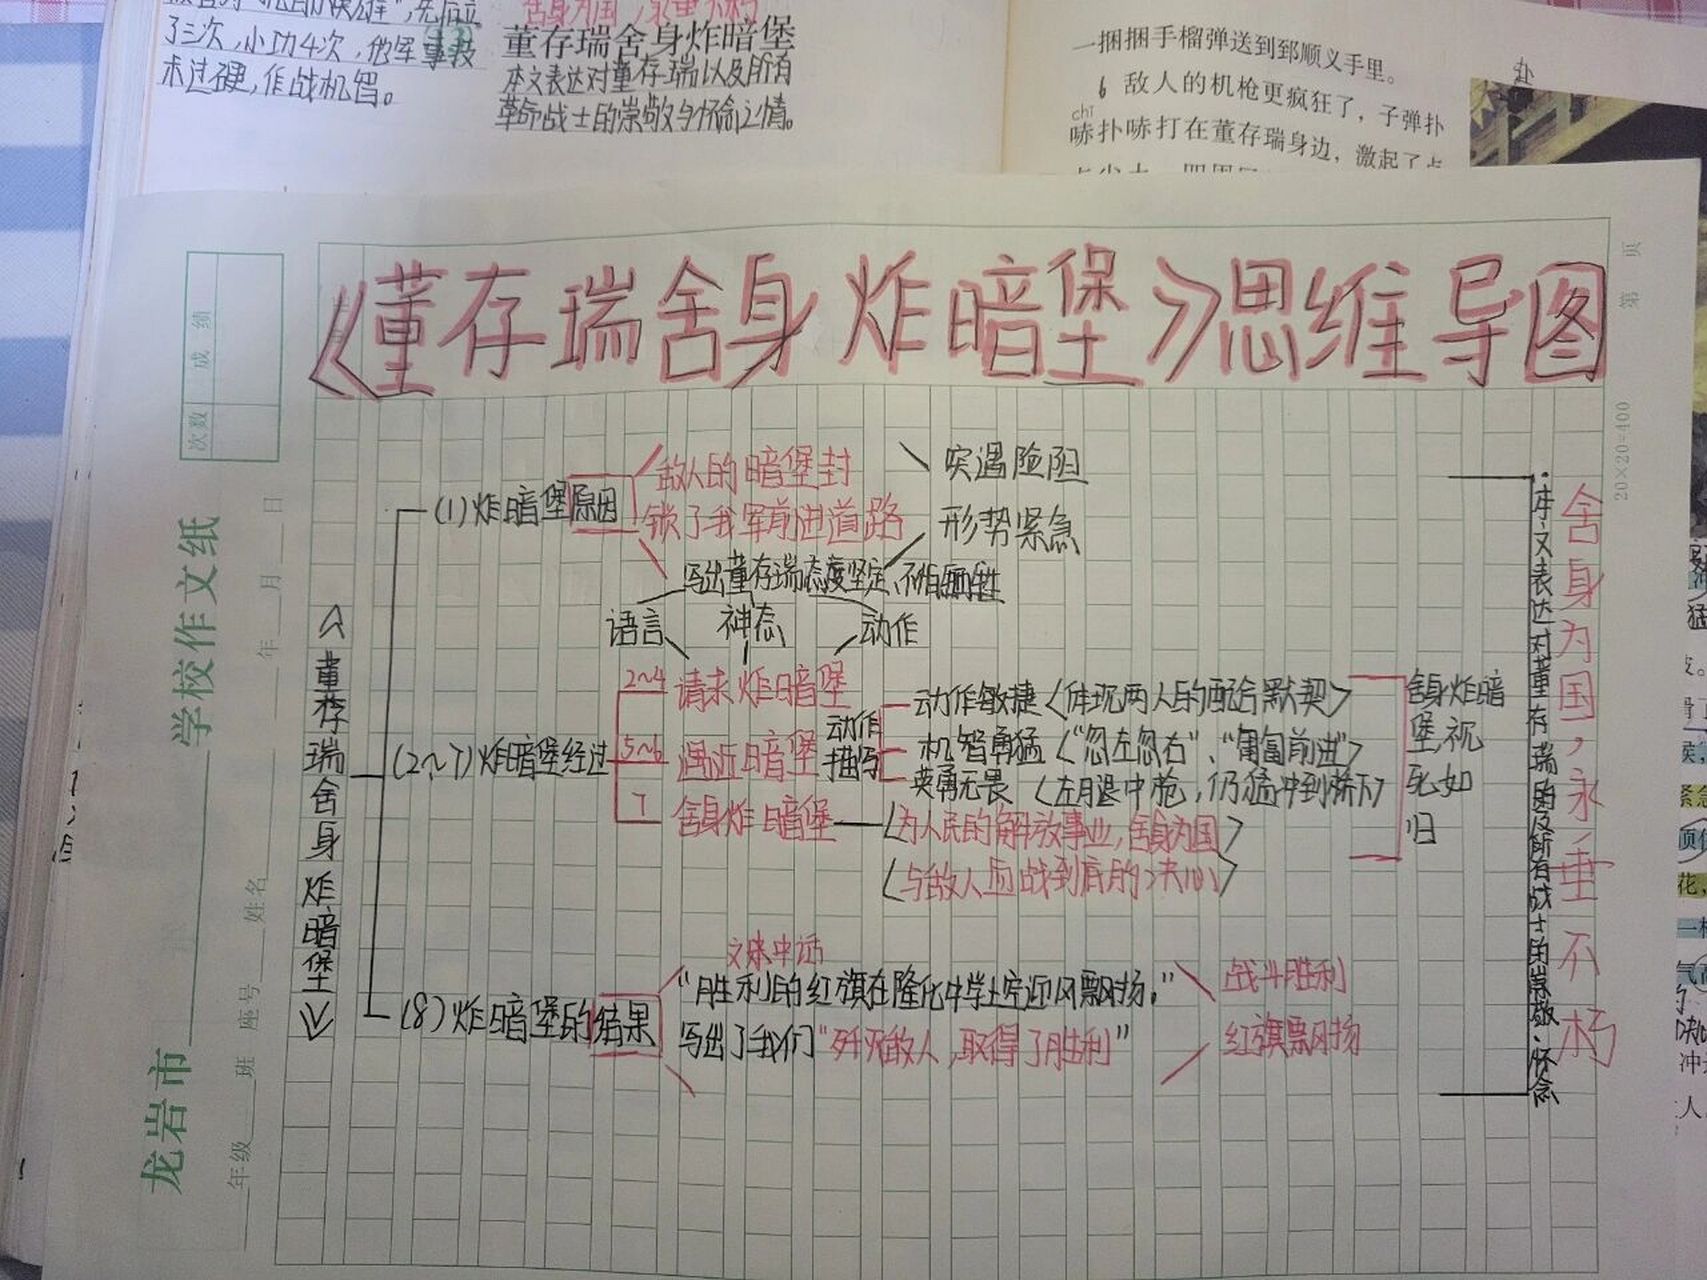 了三次，小功4次，他军事技
术过硬，作战机智。
舍身为国，永垂不朽
董存瑞舍身炸暗堡
本文表达对董存瑞以及所有
革命战士的崇敬与怀念之情。
一捆捆手榴弹送到郅顺义手里。
6 敌人的机枪更疯狂了，子弹扑
chī
哧扑哧打在董存瑞身边，激起了点
《董存瑞舍身炸暗堡》思维导图
次数 成绩
龙岩市 学校作文纸
年级 班 座号 姓名 年 月 日
第 页
20×20=400
《董存瑞舍身炸暗堡》
(1)炸暗堡原因
敌人的暗堡封
锁了我军前进道路
突遇险阻
形势紧急
写出董存瑞态度坚定、不怕牺牲
语言 神态 动作
(2~7)炸暗堡经过
2~4 请求炸暗堡
5~6 逼近暗堡
7 舍身炸暗堡
动作
描写
动作敏捷〈体现两人的配合默契〉
机智勇猛〈“忽左忽右”、“匍匐前进”〉
英勇无畏〈左腿中枪，仍猛冲到桥下〉
〈为人民的解放事业，舍身为国〉
〈与敌人血战到底的决心〉
舍身炸暗
堡，视
死如
归
(8)炸暗堡的结果
文末中话
“胜利的红旗在隆化中学上空迎风飘扬。”
写出了我们“歼灭敌人，取得了胜利”
战斗胜利
红旗飘扬
本文表达对董存瑞以及所有战士的崇敬、怀念
舍身为国，永垂不朽